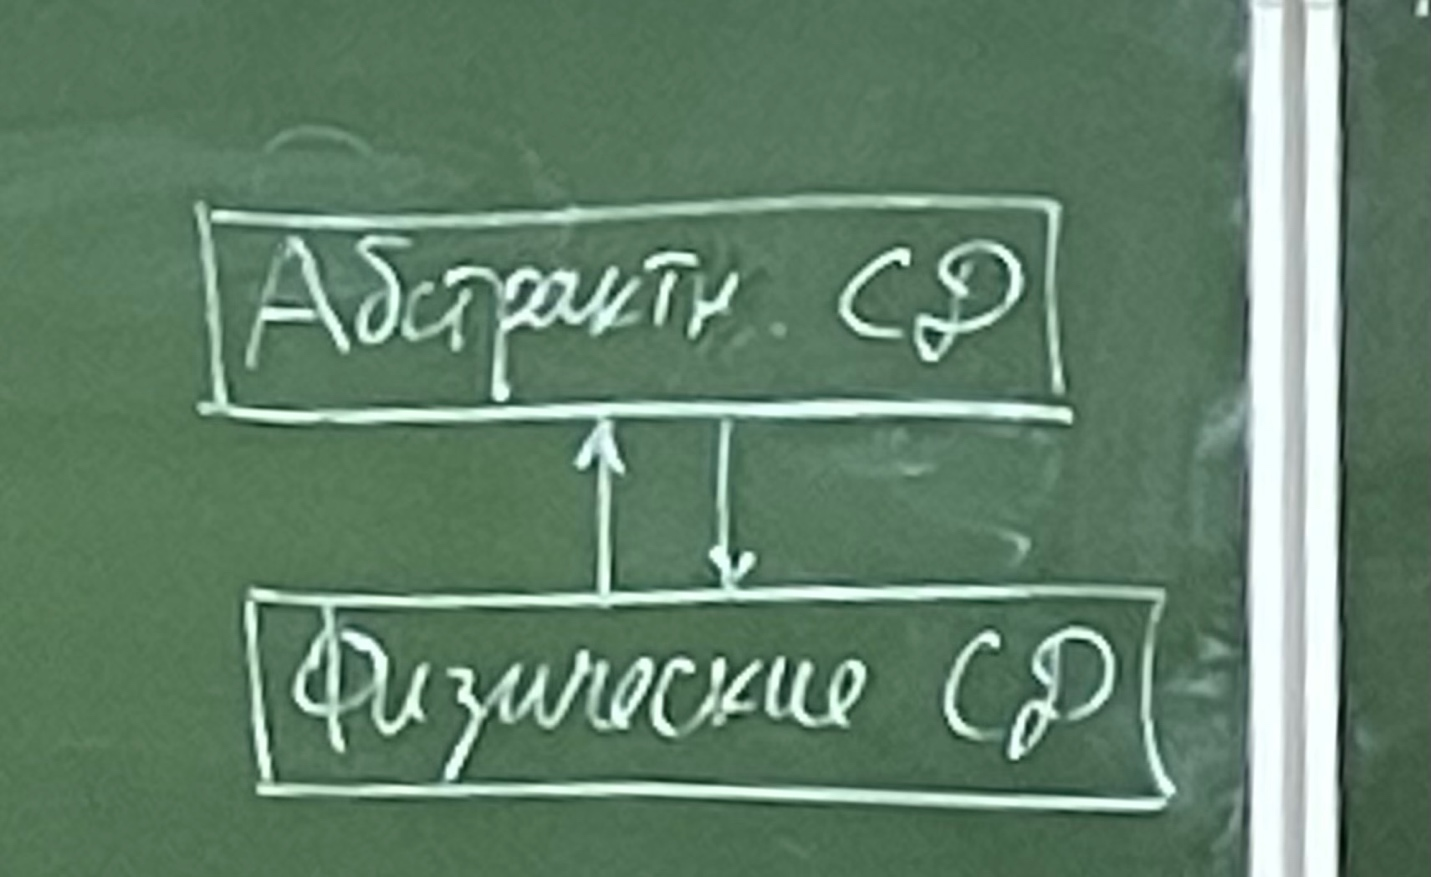 Абстрактн. СД
Физические СД